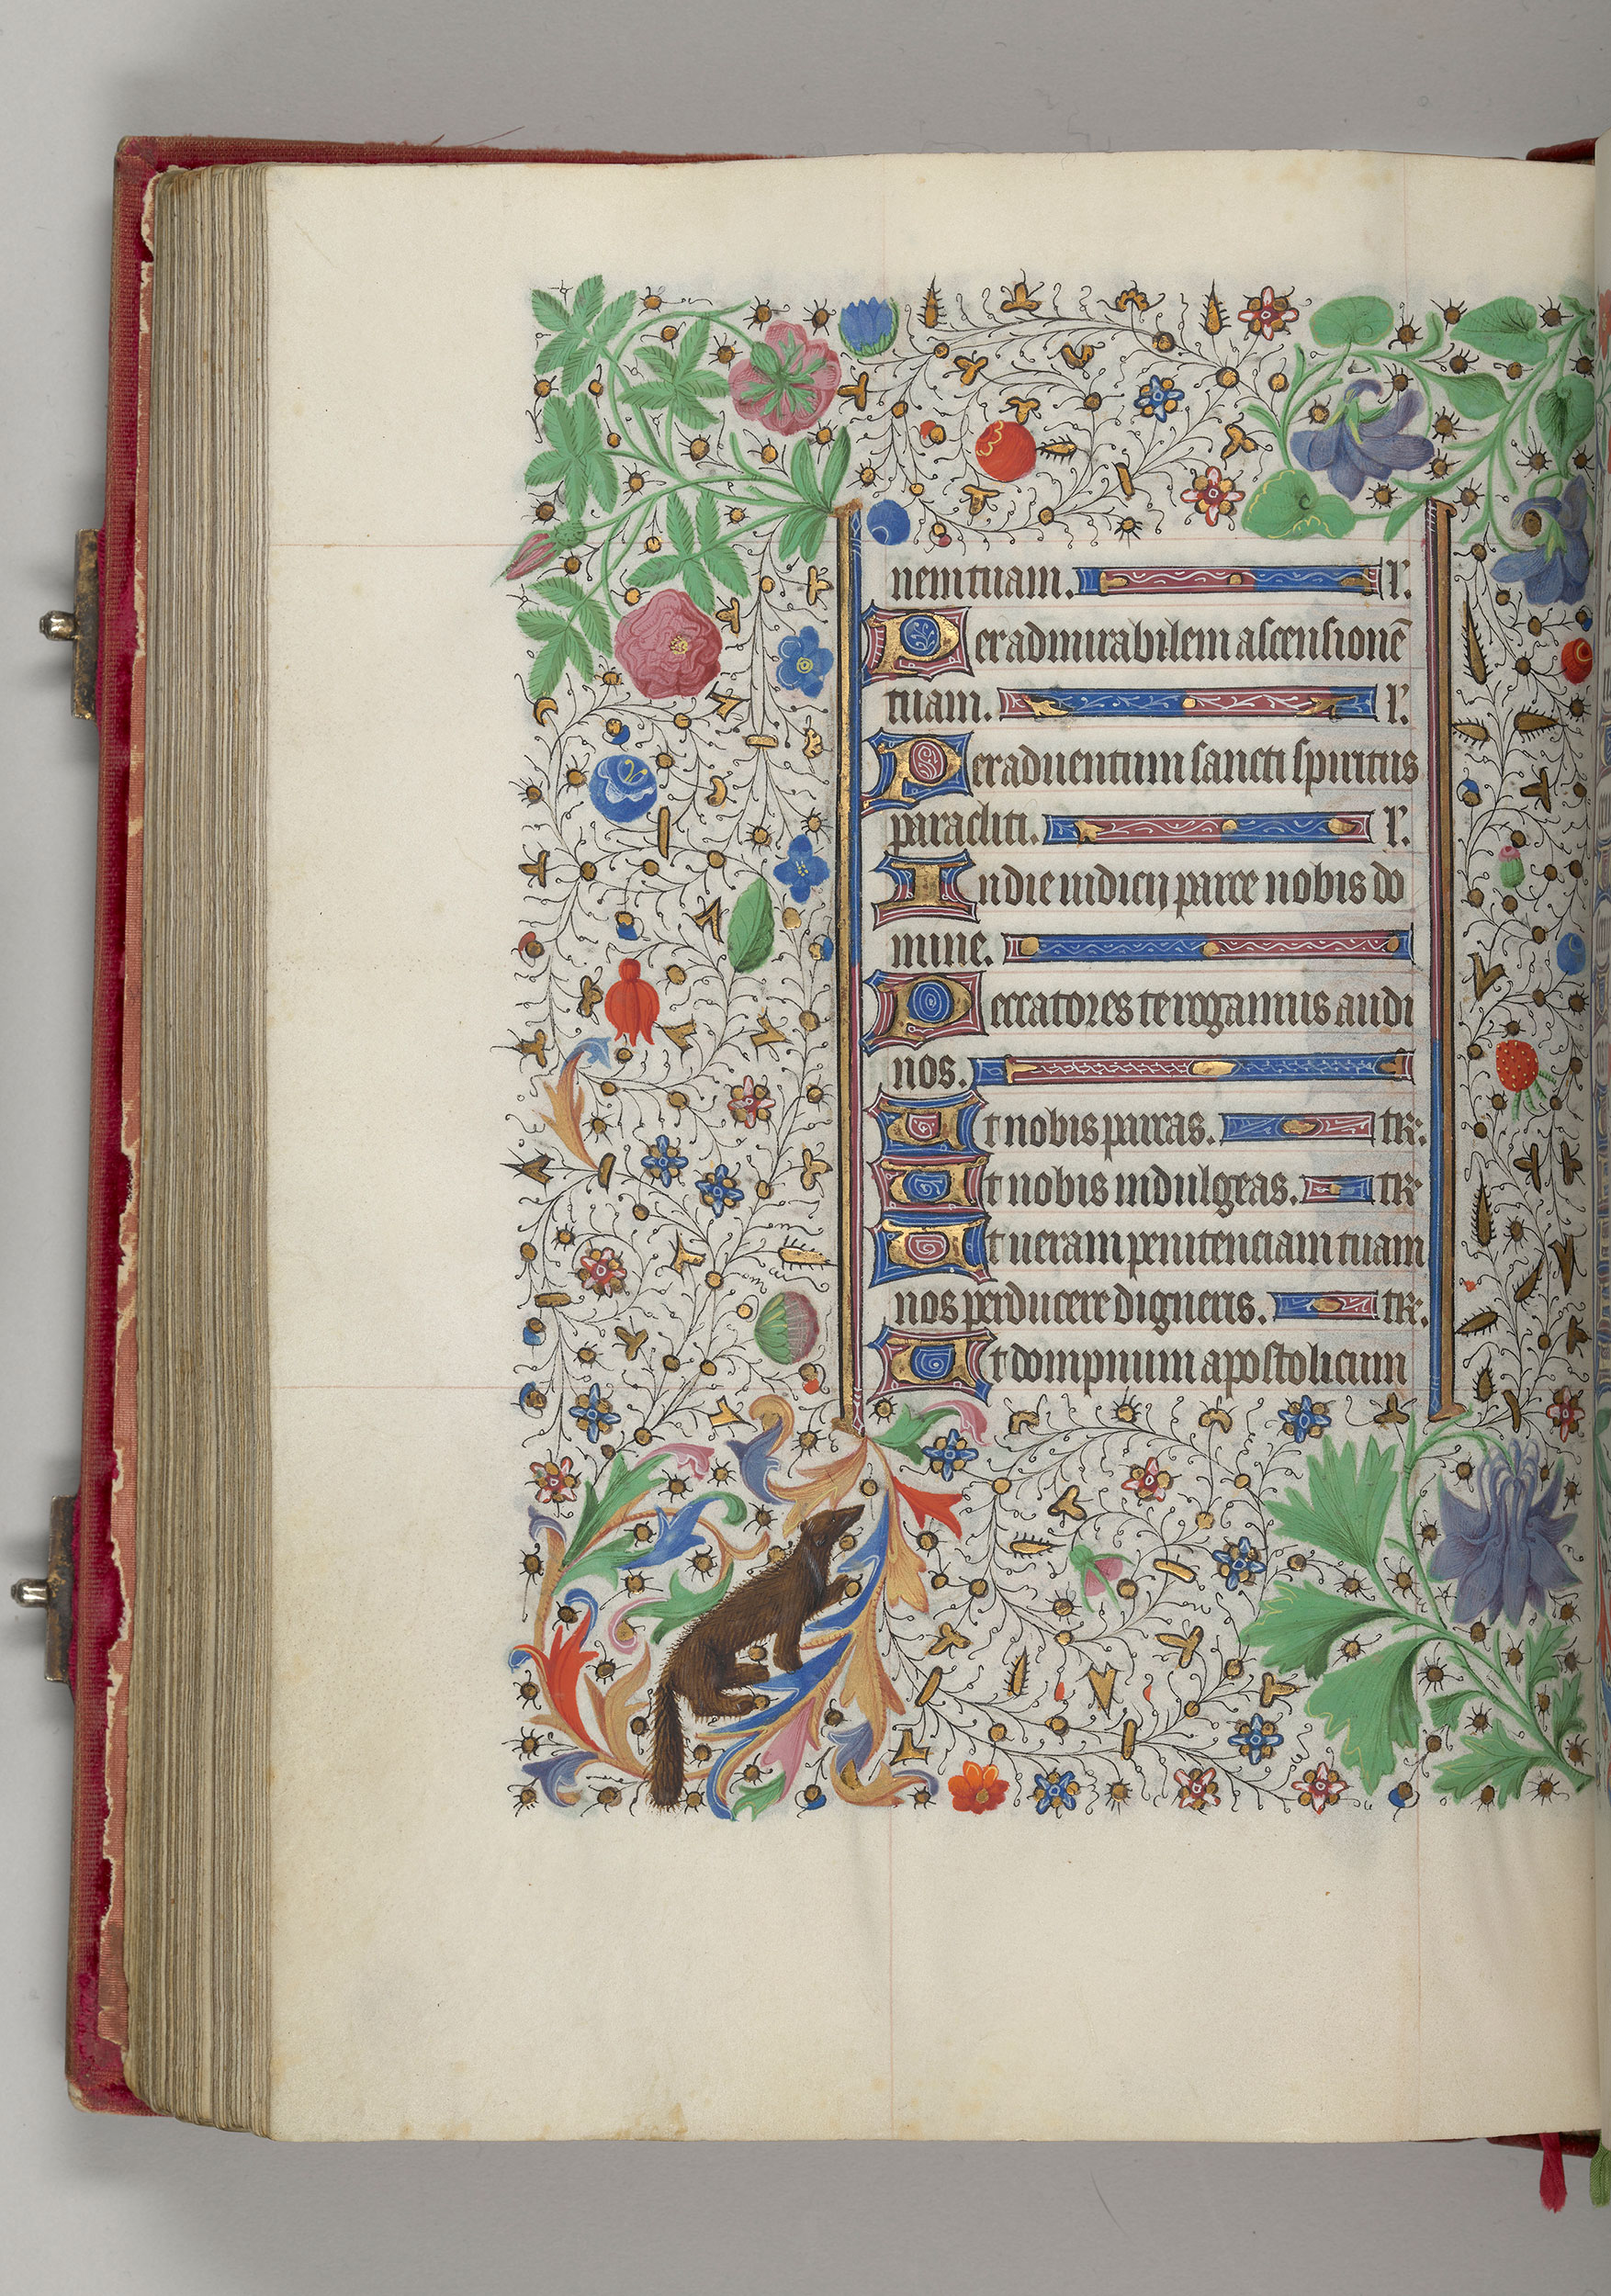 nem tuam. l'.
Per admirabilem ascensionē
tuam. l'.
Per aduentum sancti spiritus
paracliti. l'.
In die iudicij parce nobis do
mine.
Peccatores te rogamus audi
nos.
Ut nobis parcas. te r.
Ut nobis indulgeas. te r
Ut ueram penitenciam tuam
nos perducere digneris. te r.
Ut dompnum apostolicum